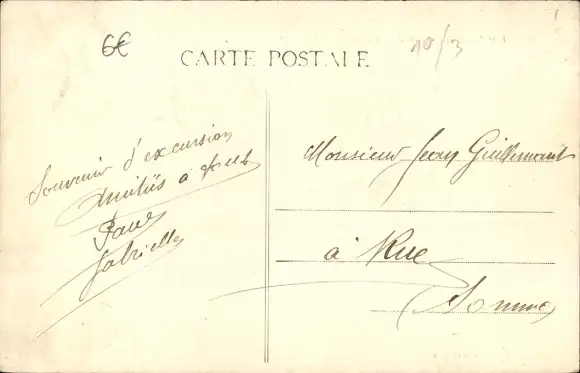 6€
10/3
CARTE POSTALE
Souvenir d'excursion
Amitiés à tous
Paul
Gabrielle
Monsieur Jean Guillemont
à Rue
Somme